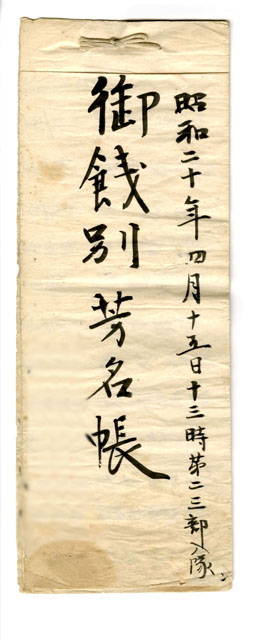 昭和二十年四月十五日十三時第二三部入隊
御餞別芳名帳